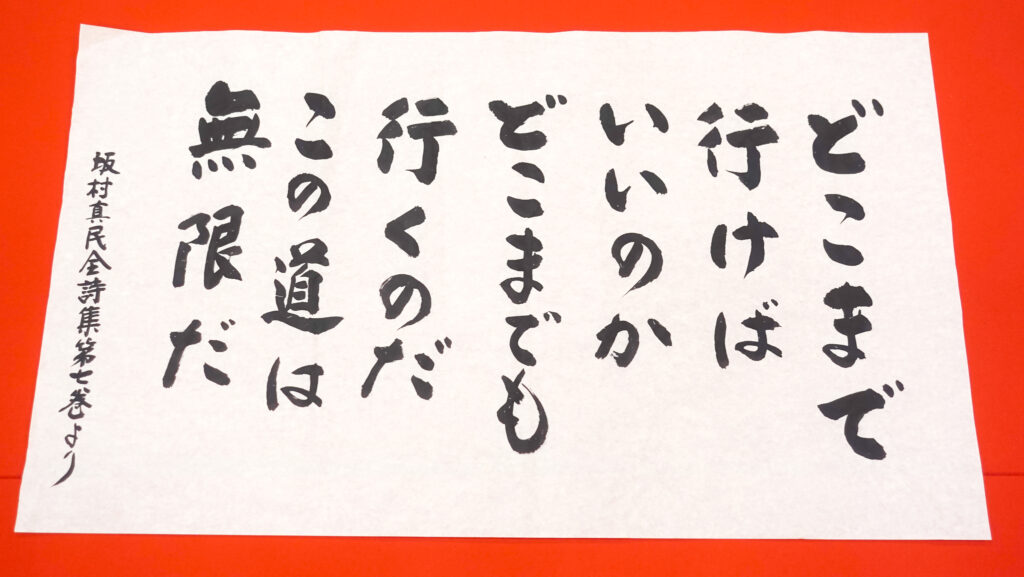 どこまで
行けば
いいのか
どこまでも
行くのだ
この道は
無限だ
坂村真民全詩集第七巻より